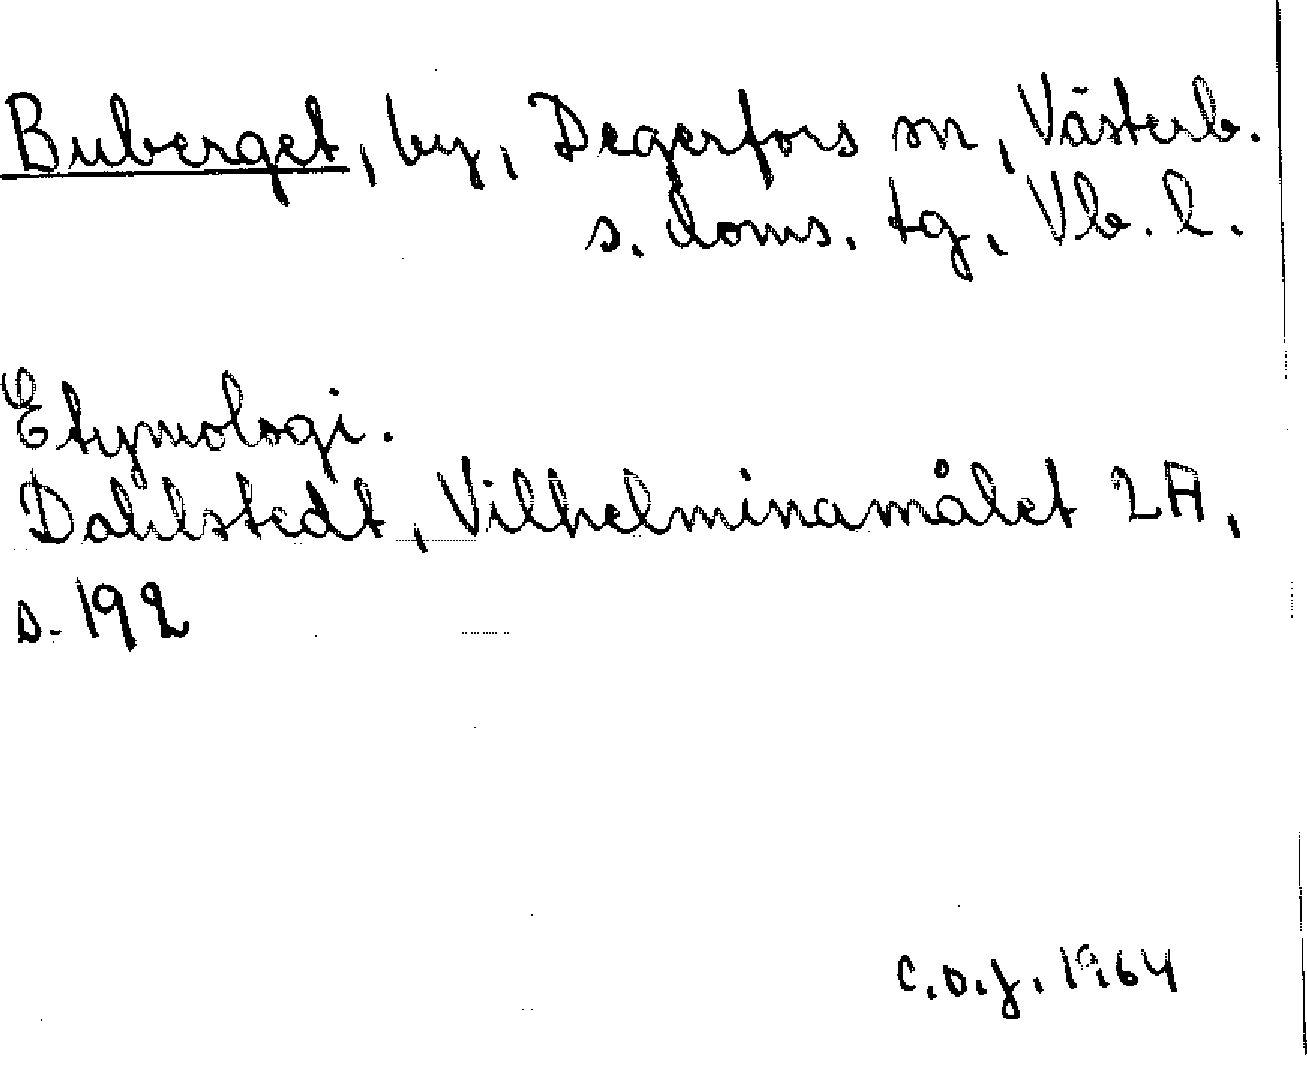 Buberget, by, Degerfors sn, Västerb.
s. doms. tg, Vb. l.
Etymologi.
Dahlstedt, Vilhelminamålet 2A,
s. 192
C.O.J. 1964